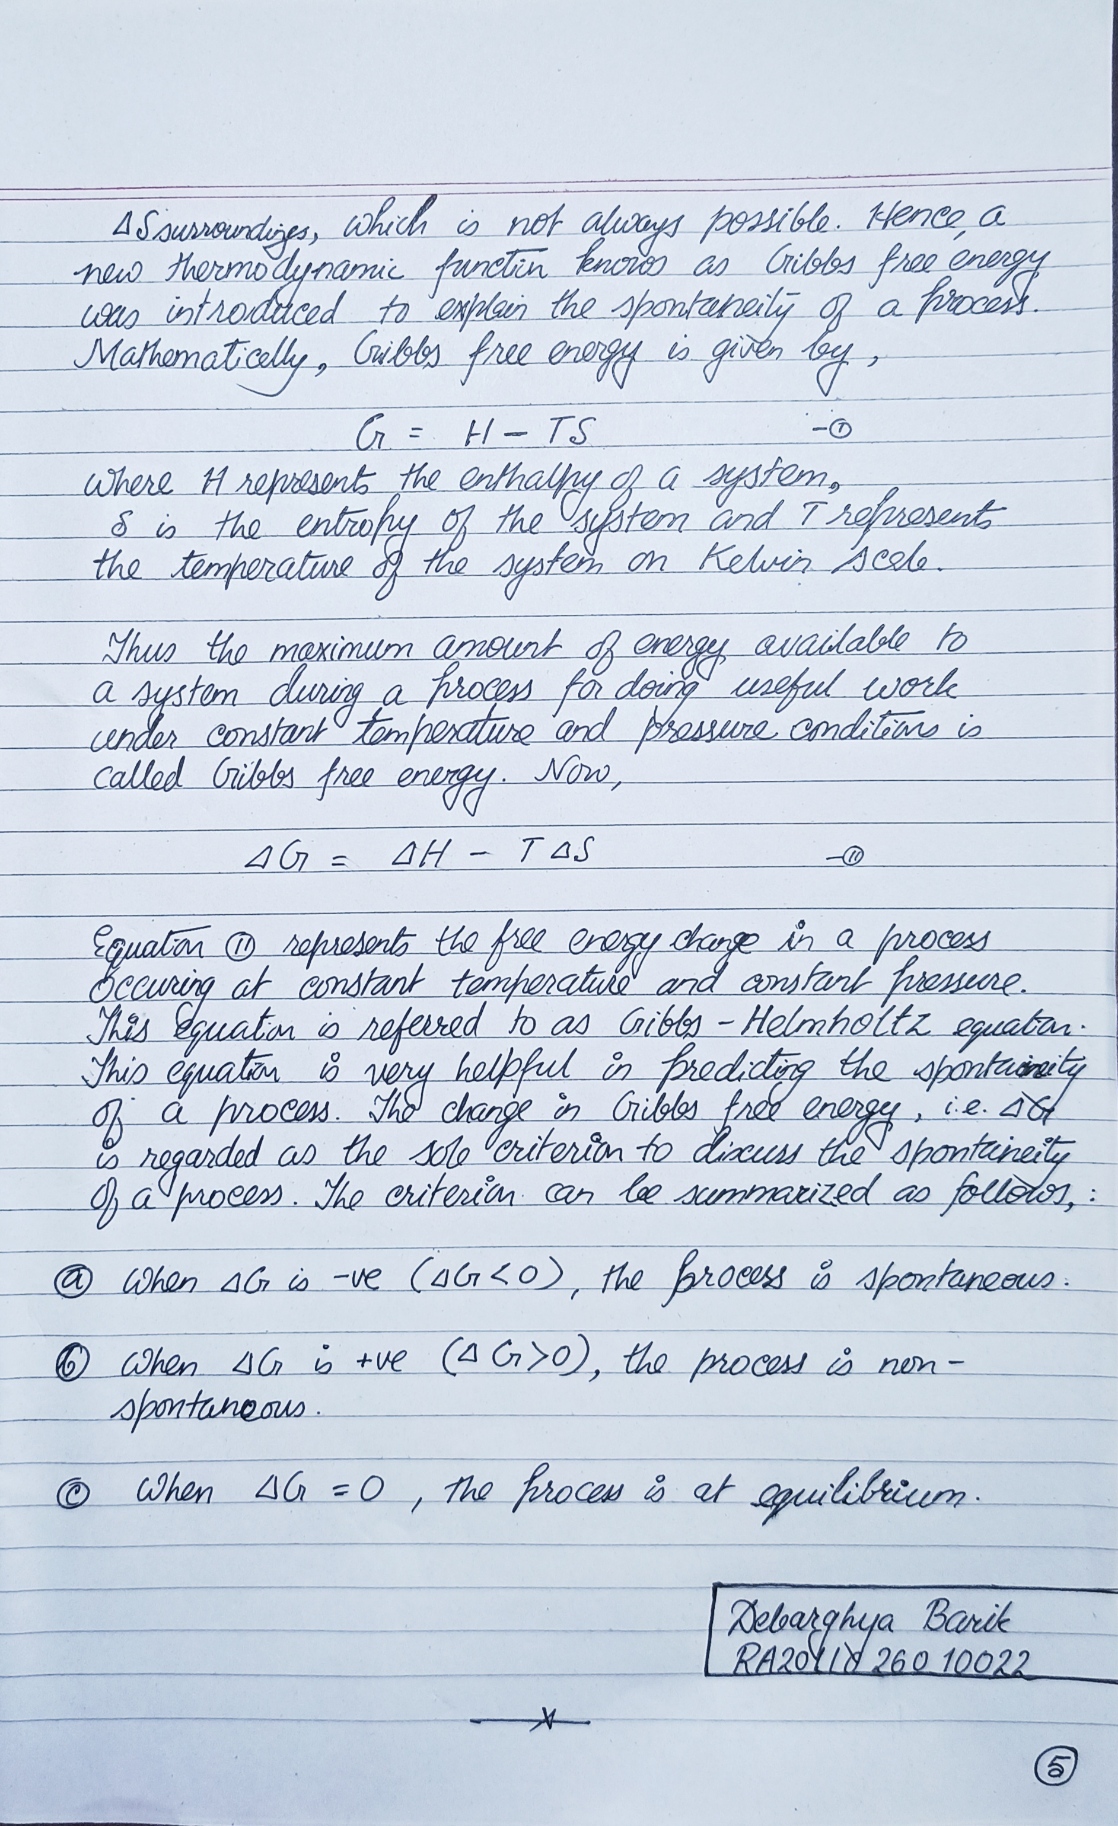 ΔS surroundings, which is not always possible. Hence, a
new thermodynamic functin knows as Gibbs free energy
was introduced to explain the spontaneity of a process.
Mathematically, Gibbs free energy is given by,
G = H - TS -①
where H represents the enthalpy of a system,
S is the entropy of the system and T represents
the temperature of the system on Kelvin scale.
Thus the maximum amount of energy available to
a system during a process for doing useful work
under constant temperature and pressure conditions is
called Gibbs free energy. Now,
ΔG = ΔH - TΔS -⑪
Equation ⑪ represents the free energy change in a process
occuring at constant temperature and constant pressure.
This equation is referred to as Gibbs - Helmholtz equation.
This equation is very helpful in predicting the spontaineity
of a process. The change in Gibbs free energy, i.e. ΔG
is regarded as the sole criterion to discuss the spontaineity
of a process. The criterion can be summarized as follows, :
ⓐ When ΔG is -ve (ΔG<0), the process is spontaneous.
ⓑ When ΔG is +ve (ΔG>0), the process is non-
spontaneous.
ⓒ When ΔG = 0, the process is at equilibrium.
Debarghya Barik
⑤